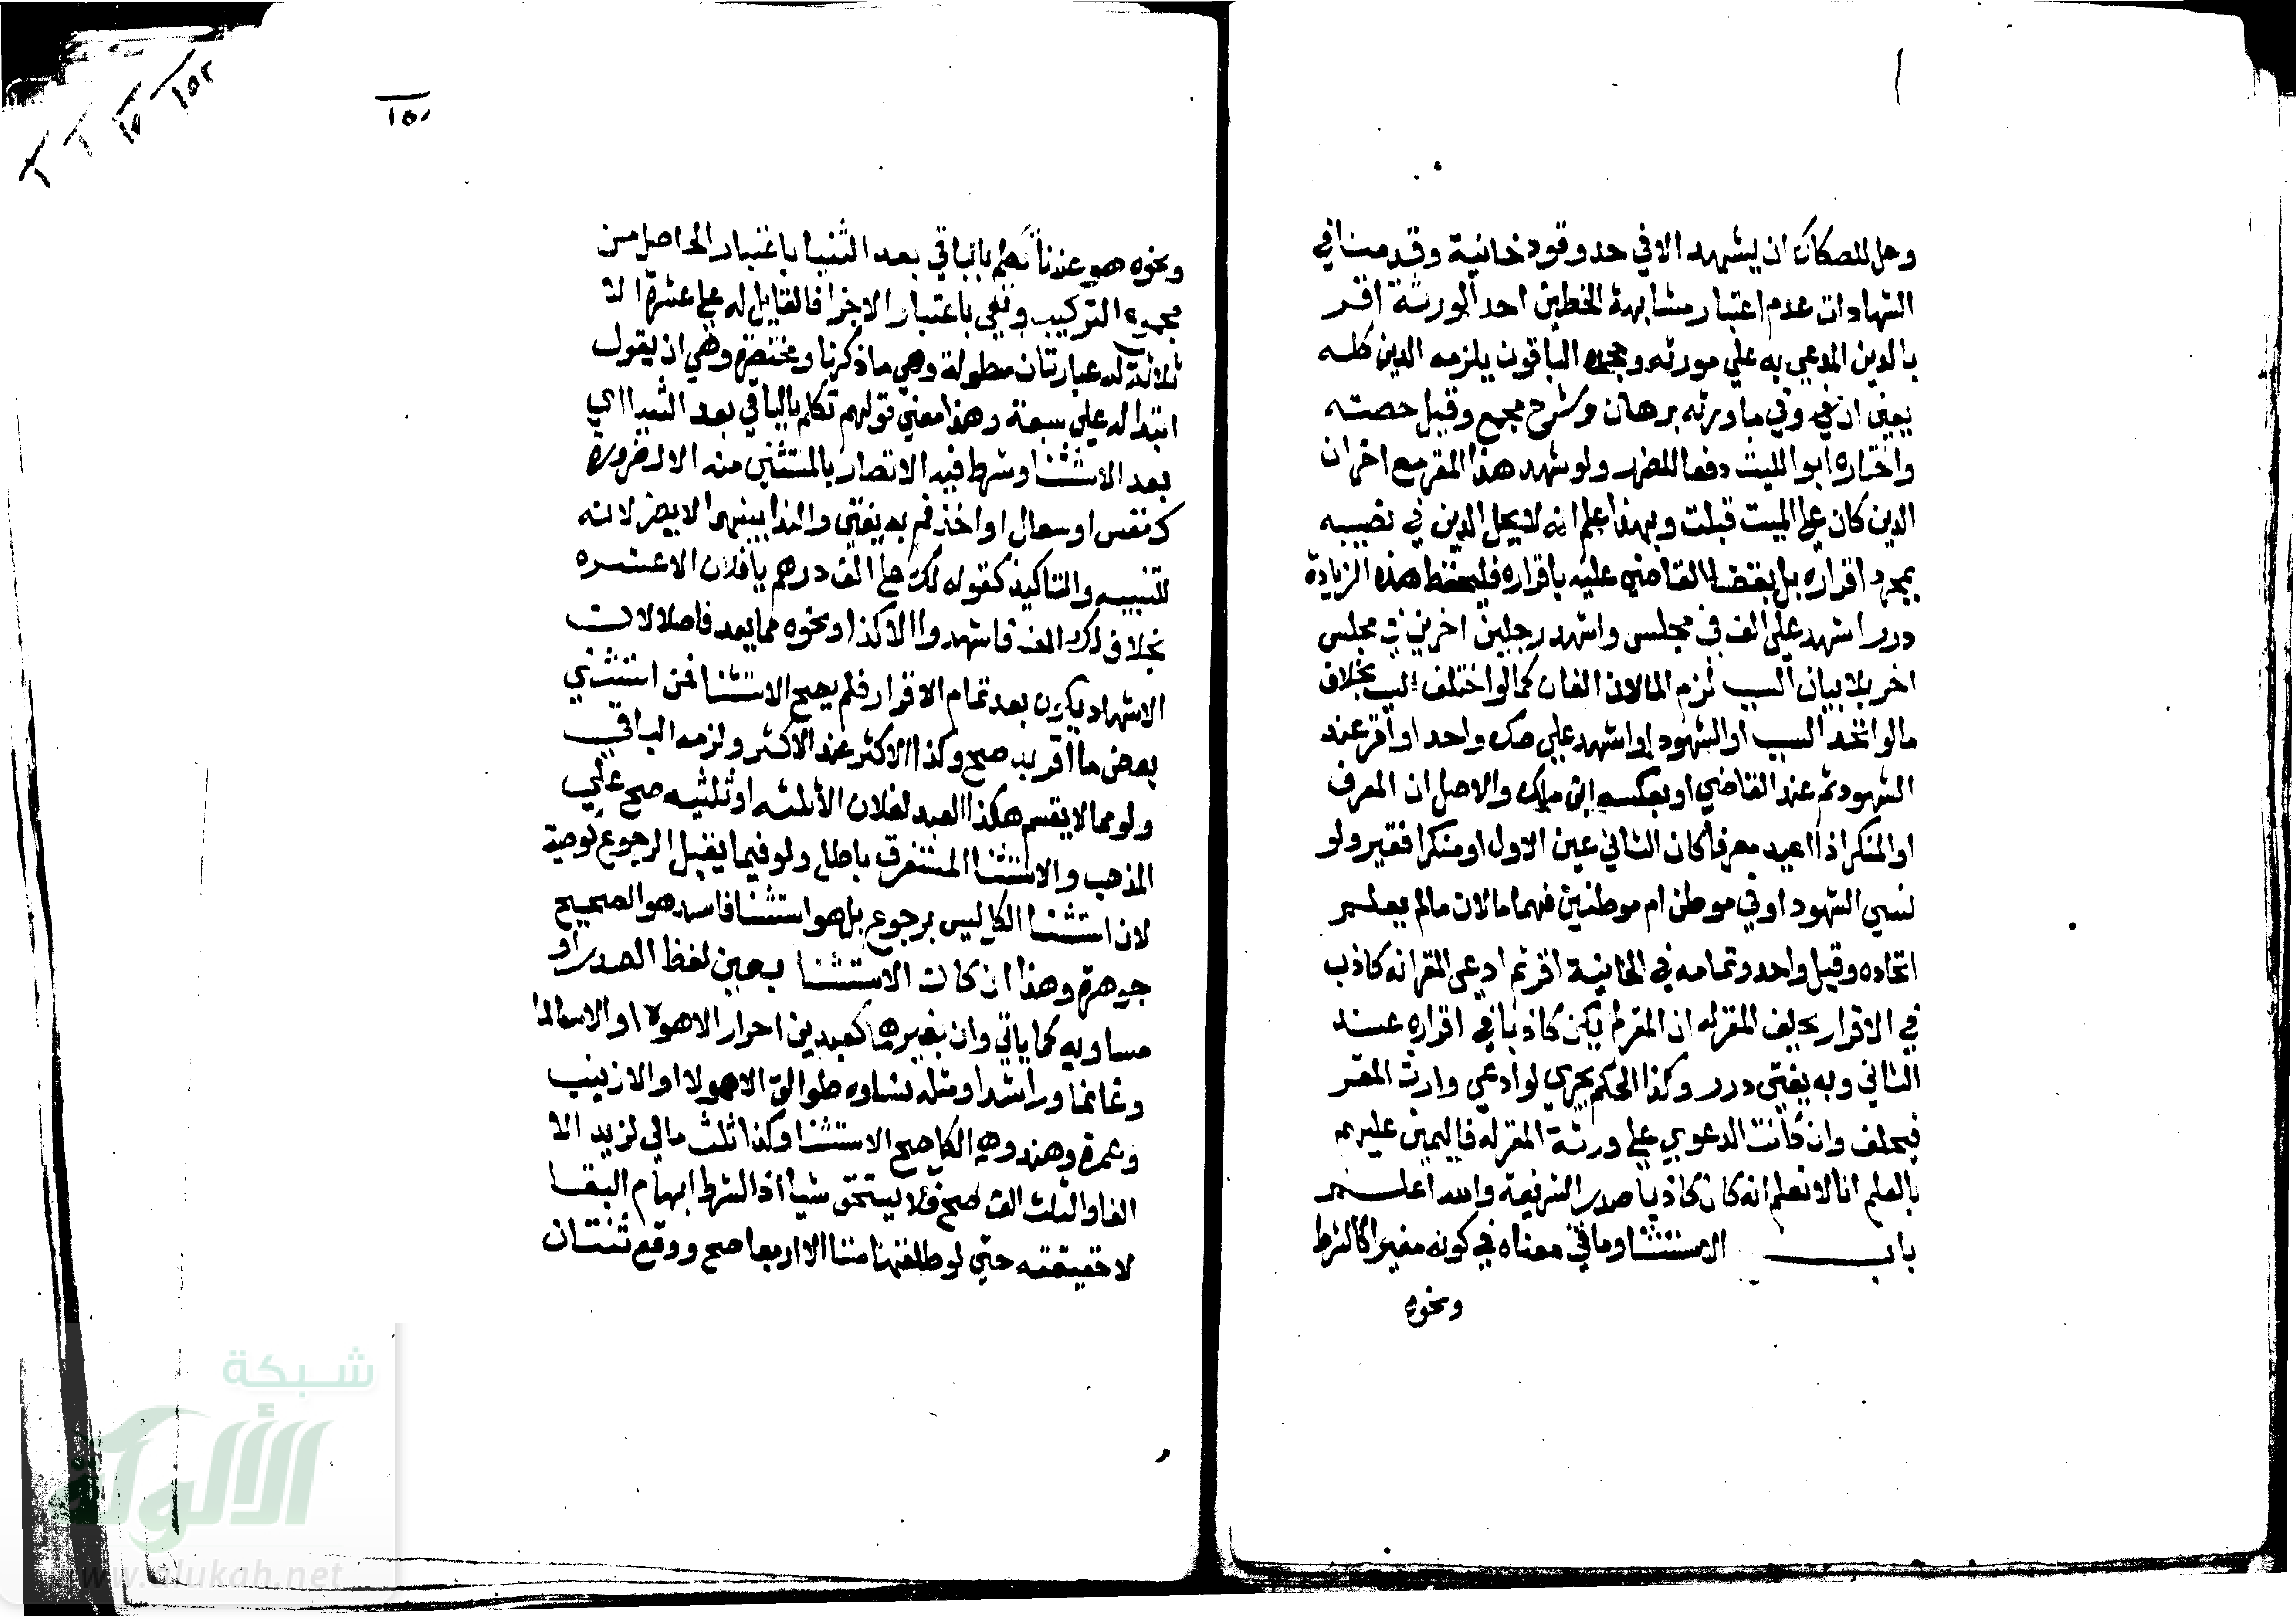 وحل للصكاك ان يشهد الا في حد وقود خانية وقدمنا في
الشهادات عدم اعتبار مشابهة الخطين احد الورثة اقر
بالدين المدعي به علي مورثه وجحده الباقون يلزمه الدين كله
يعني ان وفي ما ورثه برهان وشرح مجمع وقيل حصته
واختاره ابو الليث دفعا للضرر ولو شهد هذا المقر مع اخر ان
الدين كان علي الميت قبلت وبهذا علم انه لا يحل الدين في نصيبه
بمجرد اقراره بل بقضا القاضي عليه باقراره فليحفظ هذه الزيادة
درر اشهد علي الف في مجلس واشهد رجلين اخرين في مجلس
اخر بلا بيان السبب لزم المالان الفان كما لو اختلف السبب بخلاف
مالو اتحد السبب او الشهود او اشهد علي صك واحد او اقر عند
الشهود ثم عند القاضي او بعكسه ابن ملك والاصل ان المعرف
او المنكر اذا اعيد معرفا كان الثاني عين الاول او منكرا فغير ولو
نسي الشهود او في موطن ام موطنين فهما مالان مالم يعلم
اتحاده وقيل واحد وتمامه في الخانية اقر ثم ادعي المقر انه كاذب
في الاقرار يحلف المقر له ان المقر لم يكن كاذبا في اقراره عند
الثاني وبه يفتي درر وكذا الحكم يجري لو ادعي وارث المقر
فيحلف وان كانت الدعوي علي ورثة المقر له فاليمين عليهم
بالعلم انا لا نعلم انه كان كاذبا صدر الشريعة والله اعلم
باب الاستثنا وما في معناه في كونه مغيرا كالشرط
ونحوه
١٥٢
ونحوه هو عندنا تكلم بالباقي بعد الثنيا باعتبار الحاصل من
مجموع التركيب ونفي باعتبار الاجزا فالقايل له علي عشرة الا
ثلاثة له عبارتان مطولة وهي ما ذكرنا ومختصرة وهي ان يقول
ابتدا له علي سبعة وهذا معني قولهم تكلم بالباقي بعد الثنيا اي
بعد الاستثنا وشرط فيه الاتصال بالمستثني منه الا لضرورة
كنفس او سعال او اخذ فم به يفتي والندا بينهما لا يضر لانه
للتنبيه والتاكيد كقوله لك علي الف درهم يا فلان الا عشره
بخلاف لك الف فاشهدوا الا كذا ونحوه مما يعد فاصلا لان
الاشهاد يكون بعد تمام الاقرار فلم يصح الاستثنا فمن استثني
بعض ما اقر به صح وكذا الاكثر عند الاكثر ولزمه الباقي
ولو مما لا يقسم هكذا العبد لفلان الا ثلثه او ثلثيه صح علي
المذهب والاستثنا المستغرق باطل ولو فيما يقبل الرجوع كوصية
لان استثنا الكل ليس برجوع بل هو استثنا فاسد هو الصحيح
جوهرة وهذا ان كان الاستثنا بعين لفظ الصدر او
مساويه كما ياتي وان بغيرهما كعبدين احرار الا هولا او الا سالما
وغانما وراشدا ومثله نساوه طوالق الا هولا او الا زينب
وعمرة وهند وهم الكل صح الاستثنا وكذا ثلث مالي لزيد الا
الفا والثلث الف صح فلا يستحق شيا اذ الشرط ابهام البقا
لا حقيقته حتي لو طلقها ستا الا اربعا صح ووقع ثنتان
شبكة
الألوكة
www.alukah.net